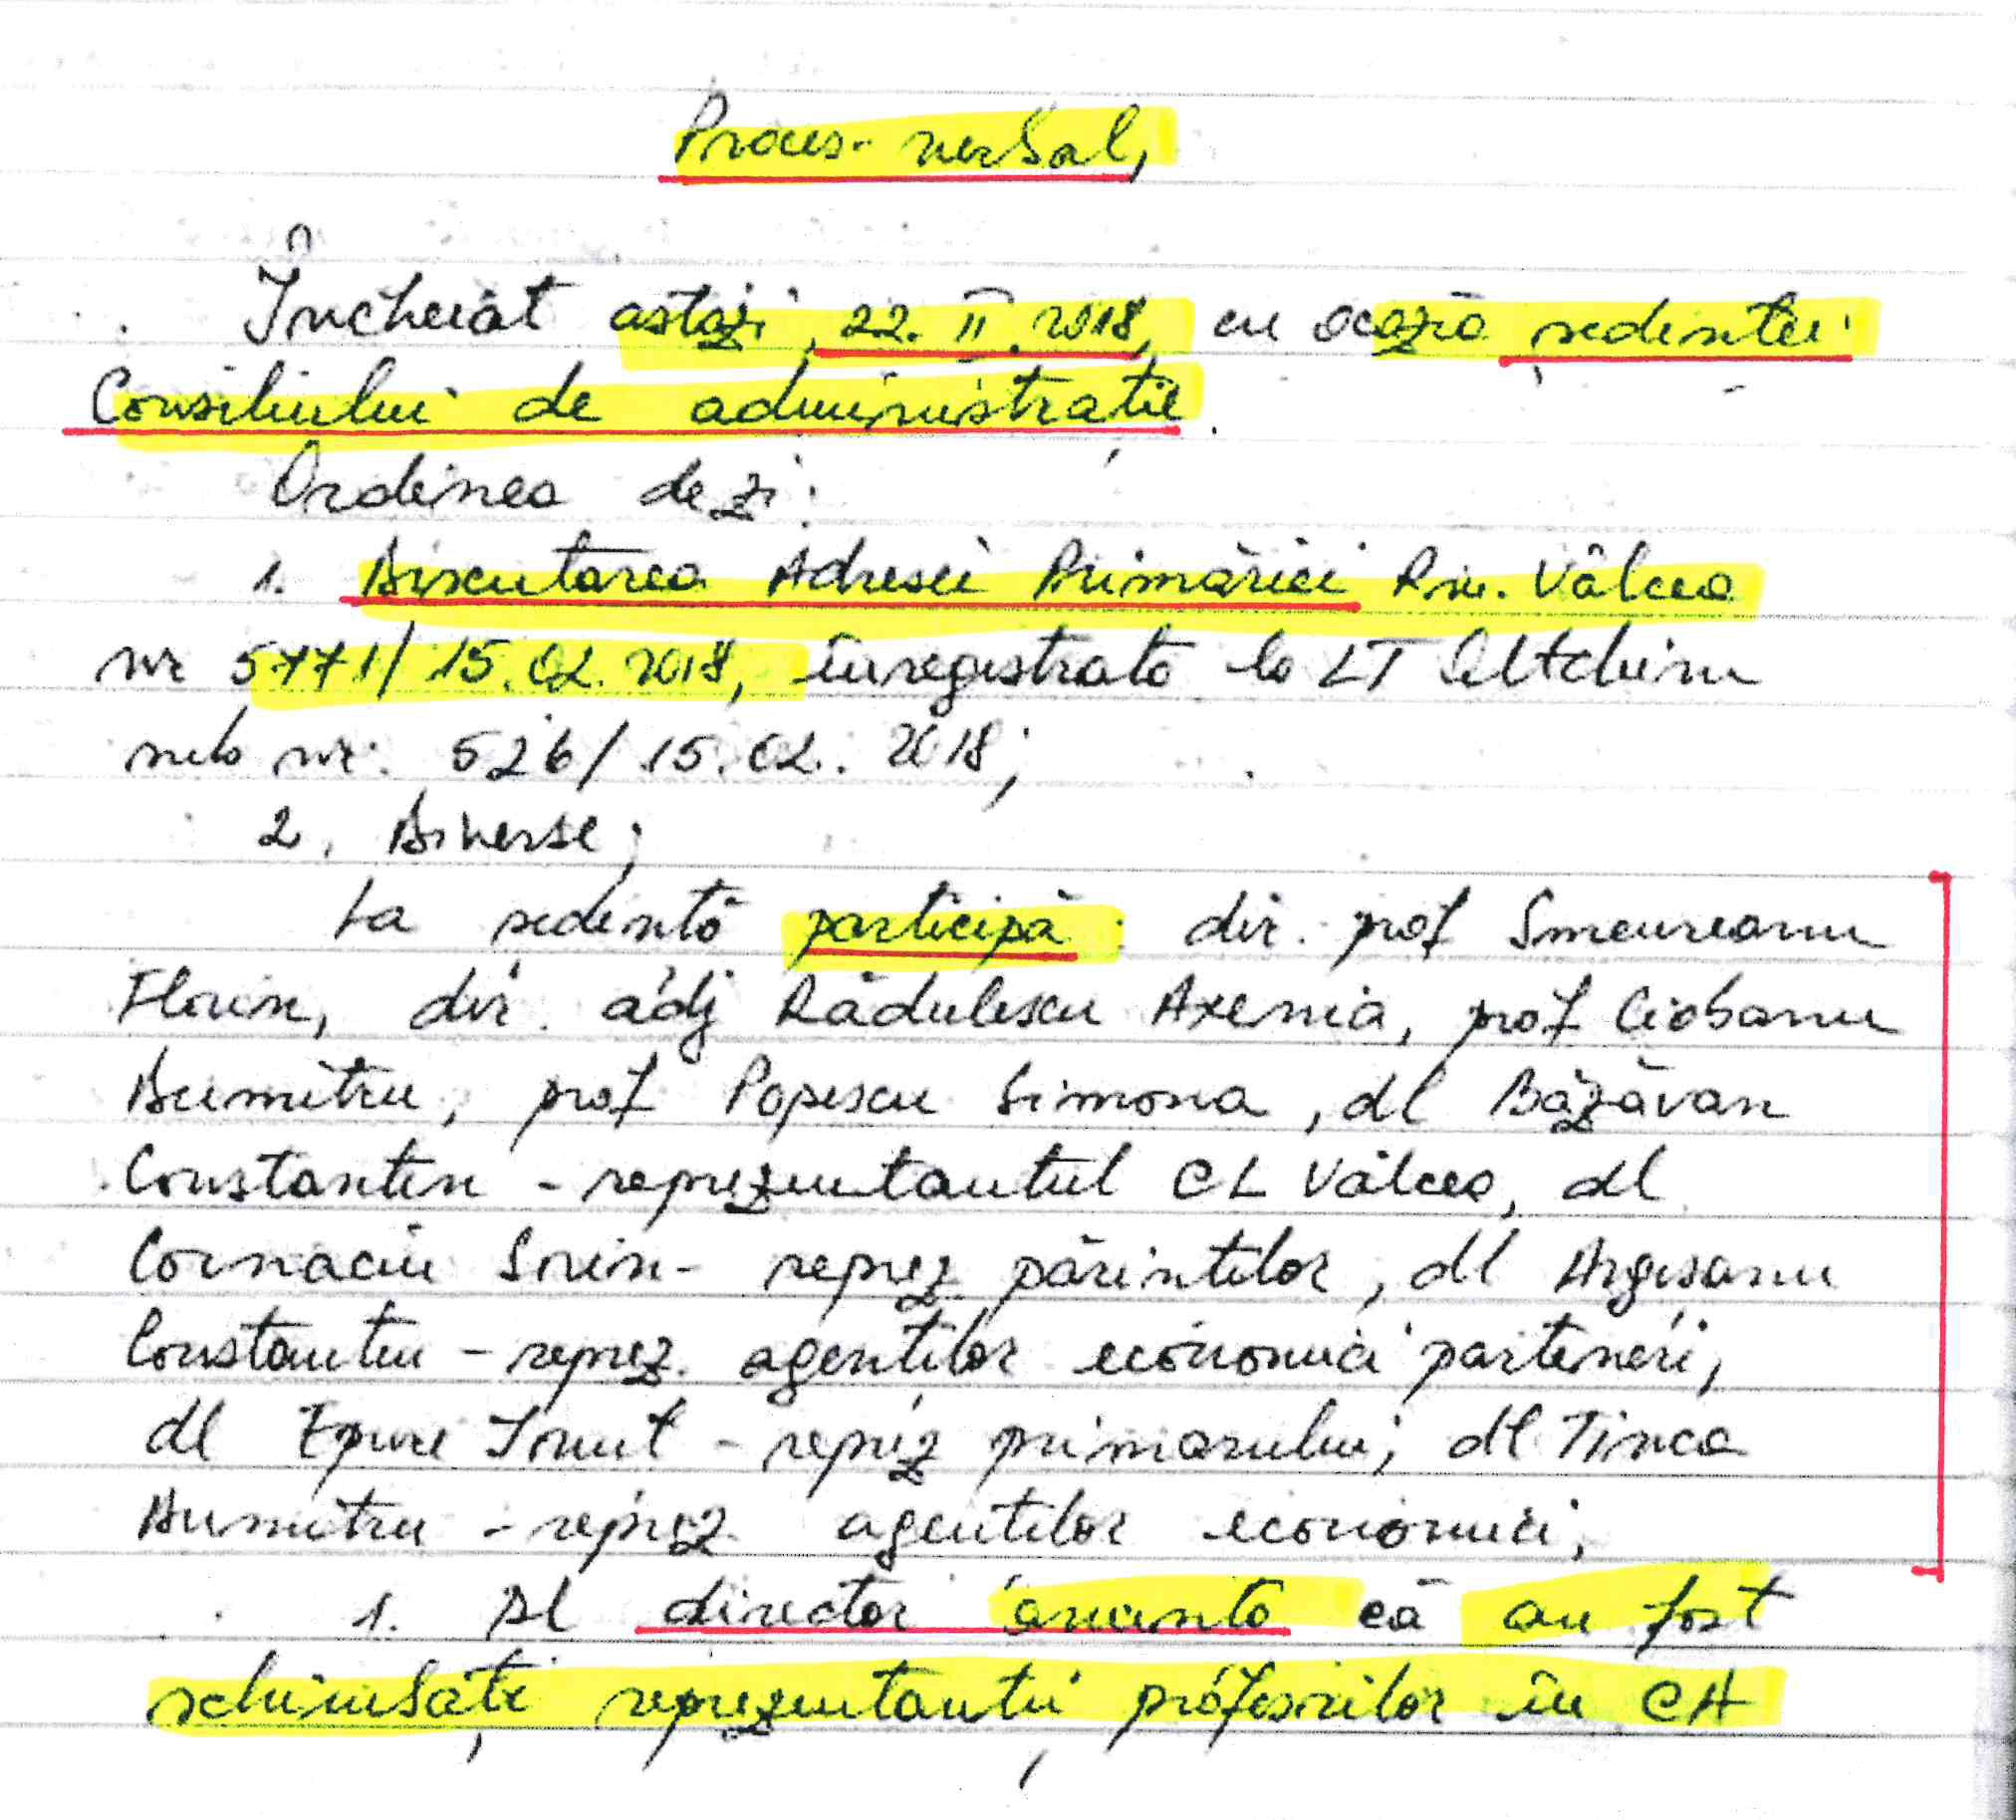 Proces-verbal,
Încheiat astăzi, 22. II. 2018, cu ocazia ședinței
Consiliului de administrație.
Ordinea de zi:
1. Discutarea Adresei Primăriei Rm. Vâlcea
nr 5771/15.02.2018, înregistrată la LT Oltchim
sub nr. 526/15.02.2018;
2. Diverse;
La ședință participă: dir. prof Smeureanu
Florin, dir. adj Rădulescu Axenia, prof Ciobanu
Dumitru, prof Popescu Simona, dl Băzăvan
Constantin - reprezentantul CL Vâlcea, dl
Cornaciu Sorin - reprez părinților, dl Argeșanu
Constantin - reprez. agenților economici parteneri,
dl Epure Ionuț - reprez primarului, dl Tinca
Dumitru - reprez agenților economici.
1. Dl director anunță că au fost
schimbați reprezentanții profesorilor în CA